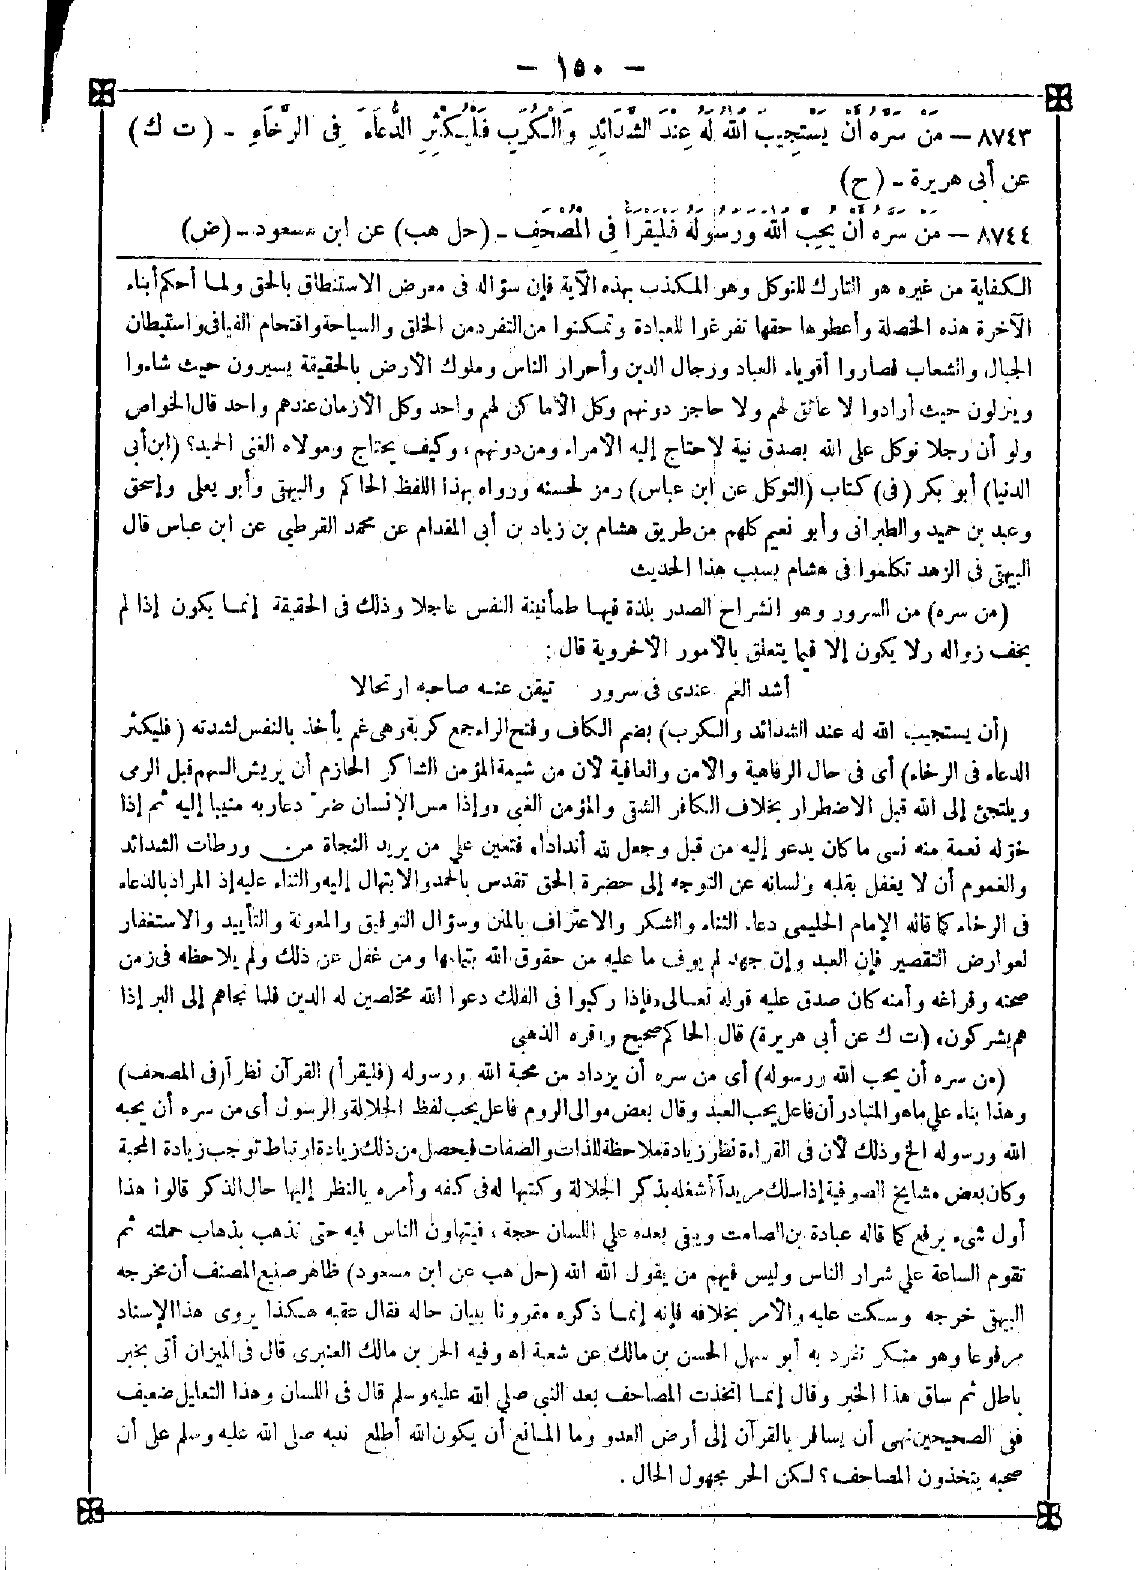 — ١٥٠ —
٨٧٤٣ — مَنْ سَرَّهُ أَنْ يَسْتَجِيبَ اللّٰهُ لَهُ عِنْدَ الشَّدَائِدِ وَالْكُرَبِ فَلْيُكْثِرِ الدُّعَاءَ فِى الرَّخَاءِ - (ت ك)
عن أبى هريرة - (ح)
٨٧٤٤ — مَنْ سَرَّهُ أَنْ يُحِبَّ اللّٰهَ وَرَسُولَهُ فَلْيَقْرَأْ فِى الْمُصْحَفِ - (حل هب) عن ابن مسعود - (ض)
الكفاية من غيره هو التارك للتوكل وهو المكذب بهذه الآية فإن سؤاله فى معرض الاستنطاق بالحق ولما أحكم أبناء
الآخرة هذه الخصلة وأعطوها حقها تفرغوا للعبادة وتمكنوا من التفرد من الخلق والسياحة واقتحام الفيافى واستيطان
الجبال والشعاب فصاروا أقوياء العباد ورجال الدين وأحرار الناس وملوك الأرض بالحقيقة يسيرون حيث شاءوا
وينزلون حيث أرادوا لا عائق لهم ولا حاجز دونهم وكل الأماكن لهم واحد وكل الأزمان عندهم واحد قال الخواص
ولو أن رجلا توكل على الله بصدق نية لاحتاج إليه الأمراء ومن دونهم، وكيف يحتاج ومولاه الغنى الحميد؟ (ابن أبى
الدنيا) أبو بكر (فى) كتاب (التوكل عن ابن عباس) رمز لحسنه ورواه بهذا اللفظ الحاكم والبيهقى وأبو يعلى وإسحق
وعبد بن حميد والطبرانى وأبو نعيم كلهم من طريق هشام بن زياد بن أبى المقدام عن محمد القرظى عن ابن عباس قال
البيهقى فى الزهد تكلموا فى هشام بسبب هذا الحديث
(من سره) من السرور وهو انشراح الصدر بلذة فيها طمأنينة النفس عاجلا وذلك فى الحقيقة إنما يكون إذا لم
يخف زواله ولا يكون إلا فيما يتعلق بالأمور الأخروية قال :
أشد الغم عندى فى سرور تيقن عنه صاحبه ارتحالا
(أن يستجيب الله له عند الشدائد والكرب) بضم الكاف وفتح الراء جمع كربة وهى غم يأخذ بالنفس لشدته (فليكثر
الدعاء فى الرخاء) أى فى حال الرفاهية والأمن والعافية لأن من شيمة المؤمن الشاكر الحازم أن يريش السهم قبل الرمى
ويلتجئ إلى الله قبل الاضطرار بخلاف الكافر الشقى والمؤمن الغبى «وإذا مس الإنسان ضر دعا ربه منيبا إليه ثم إذا
خوله نعمة منه نسى ما كان يدعو إليه من قبل وجعل لله أندادا» فتعين على من يريد النجاة من ورطات الشدائد
والغموم أن لا يغفل بقلبه ولسانه عن التوجه إلى حضرة الحق تقدس بالحمد والابتهال إليه والثناء عليه إذ المراد بالدعاء
فى الرخاء كما قاله الإمام الحليمى دعاء الثناء والشكر والاعتراف بالمنن وسؤال التوفيق والمعونة والتأييد والاستغفار
لعوارض التقصير فإن العبد وإن جهد لم يوف ما عليه من حقوق الله بتمامها ومن غفل عن ذلك ولم يلاحظه فى زمن
صحته وفراغه وأمنه كان صدق عليه قوله تعالى «فإذا ركبوا فى الفلك دعوا الله مخلصين له الدين فلما نجاهم إلى البر إذا
هم يشركون» (ت ك عن أبى هريرة) قال الحاكم صحيح وأقره الذهبى
(من سره أن يحب الله ورسوله) أى من سره أن يزداد من محبة الله ورسوله (فليقرأ) القرآن نظرا (فى المصحف)
وهذا بناء على ما هو المتبادر أن فاعل يحب العبد وقال بعض موالى الروم فاعل يحب لفظ الجلالة والرسول أى من سره أن يحبه
الله ورسوله الخ وذلك لأن فى القراءة نظر زيادة ملاحظة للذات والصفات فيحصل من ذلك زيادة ارتباط توجب زيادة المحبة
وكان بعض مشايخ الصوفية إذا سلك مريدا أشغله بذكر الجلالة وكتبها له فى كفه وأمره بالنظر إليها حال الذكر قالوا هذا
أول شىء يرفع كما قاله عبادة بن الصامت ويبقى بعده على اللسان حجة، فيتهاون الناس فيه حتى تذهب بذهاب حملته ثم
تقوم الساعة على شرار الناس وليس فيهم من يقول الله الله (حل هب عن ابن مسعود) ظاهر صنيع المصنف أن مخرجه
البيهقى خرجه وسكت عليه والأمر بخلافه فإنه إنما ذكره مقرونا ببيان حاله فقال عقبه هكذا يروى هذا الإسناد
مرفوعا وهو منكر تفرد به أبو سهل الحسن بن مالك عن شعبة اه وفيه الحر بن مالك العنبرى قال فى الميزان أتى بخبر
باطل ثم ساق هذا الخبر وقال إنما اتخذت المصاحف بعد النبى صلى الله عليه وسلم قال فى اللسان وهذا التعليل ضعيف
ففى الصحيحين نهى أن يسافر بالقرآن إلى أرض العدو وما المانع أن يكون الله أطلع نبيه صلى الله عليه وسلم على أن
صحبه يتخذون المصاحف؟ لكن الحر مجهول الحال .